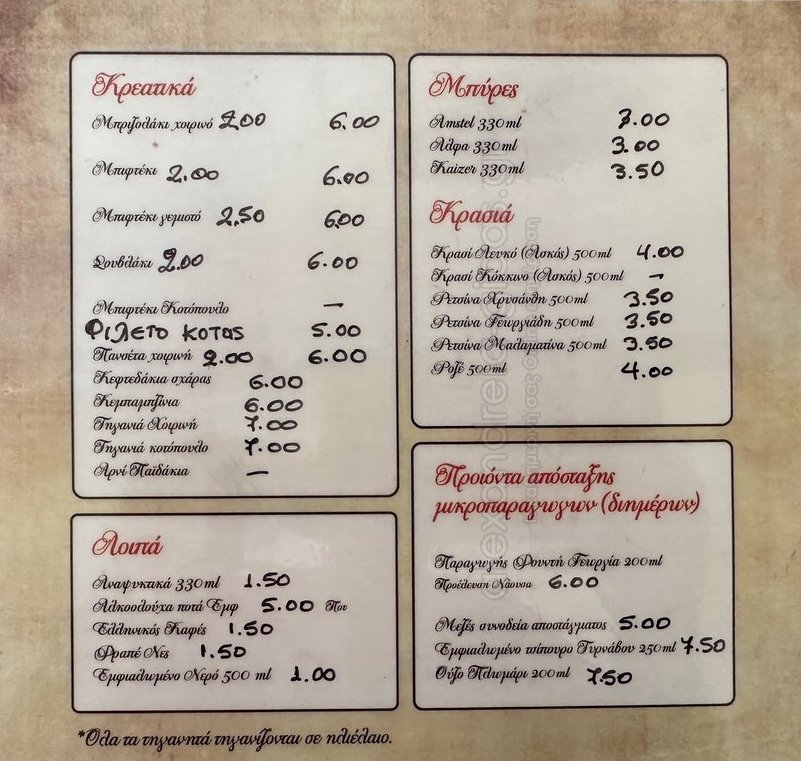 Κρεατικά
Μπριζολάκι χοιρινό 2.00 6.00
Μπιφτέκι 2.00 6.00
Μπιφτέκι γεμιστό 2,50 6.00
Σουβλάκι 2.00 6.00
Μπιφτέκι Κοτόπουλο —
ΦΙΛΕΤΟ ΚΟΤΑΣ 5.00
Πανσέτα χοιρινή 2.00 6.00
Κεφτεδάκια σχάρας 6.00
Κεμπαμτζίνια 6.00
Τηγανιά Χοιρινή 7.00
Τηγανιά κοτόπουλο 7.00
Αρνί Παϊδάκια —
Λοιπά
Αναψυκτικά 330ml 1.50
Αλκοολούχα ποτά Εμφ 5.00 Ποτ
Ελληνικός Καφές 1.50
Φραπέ Νες 1.50
Εμφιαλωμένο Νερό 500 ml 1.00
Μπύρες
Amstel 330ml 3.00
Αλφα 330ml 3.00
Kaizer 330ml 3.50
Κρασιά
Κρασί Λευκό (Ασκός) 500ml 4.00
Κρασί Κόκκινο (Ασκός) 500ml —
Ρετσίνα Χρυσάνθη 500ml 3.50
Ρετσίνα Γεωργιάδη 500ml 3.50
Ρετσίνα Μαλαματίνα 500ml 3.50
Ροζέ 500ml 4.00
Προιόντα απόσταξης
μικροπαραγωγων (διημέρων)
Παραγωγής Φουντή Γεωργία 200ml
Προέλευση Νάουσα 6.00
Μεζές συνοδεία αποστάγματος 5.00
Εμφιαλωμένο τσίπουρο Τυρνάβου 250ml 7.50
Ούζο Πλωμάρι 200ml 7.50
*Όλα τα τηγανητά τηγανίζονται σε ηλιέλαιο.